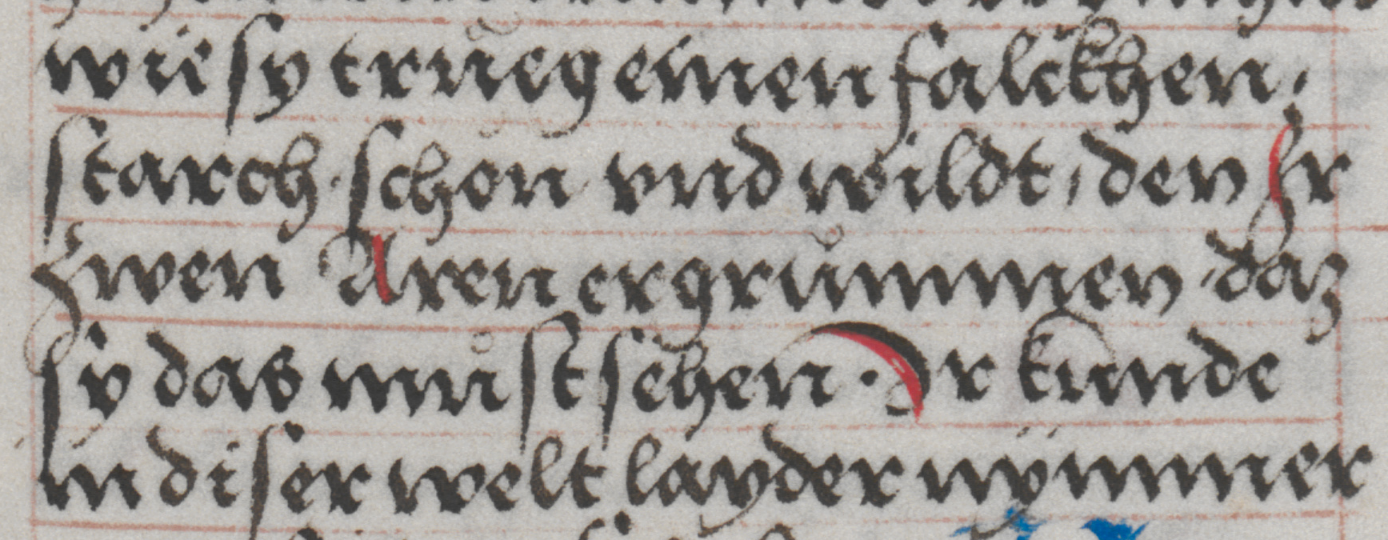 wie sy trüeg einen falckhen,
starch · schon vnd wildt, den Jr
zwen Aren ergrummen, daz
sy das muost sehen · Jr kunde
in diser welt layder nÿmmer